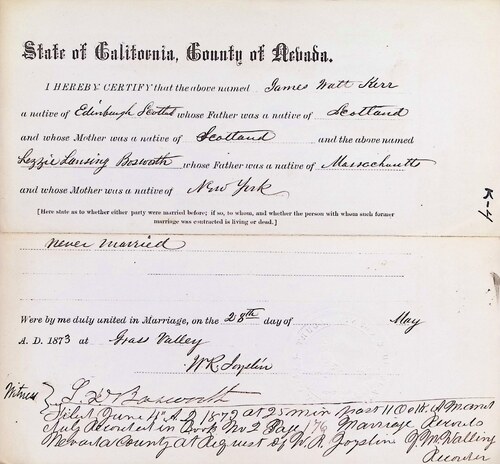 State of California, County of Nevada.
I HEREBY CERTIFY that the above named James Watt Kerr
a native of Edinburgh Scotld whose Father was a native of Scotland
and whose Mother was a native of Scotland and the above named
Lizzie Lansing Bosworth whose Father was a native of Massachusetts
and whose Mother was a native of New York
[Here state as to whether either party were married before; if so, to whom, and whether the person with whom such former
marriage was contracted is living or dead.]
K-4
never married
Were by me duly united in Marriage, on the 28th day of May
A. D. 1873 at Grass Valley
W.R. Joyslin
Witness } Bosworth
Filed June A.D. 1873 at 25 min past 11 O'clk A.M. and
Recorded in Book No 2 Page 176 Marriage Records
Nevada County at Request of W. R. Joyslin
Recorder